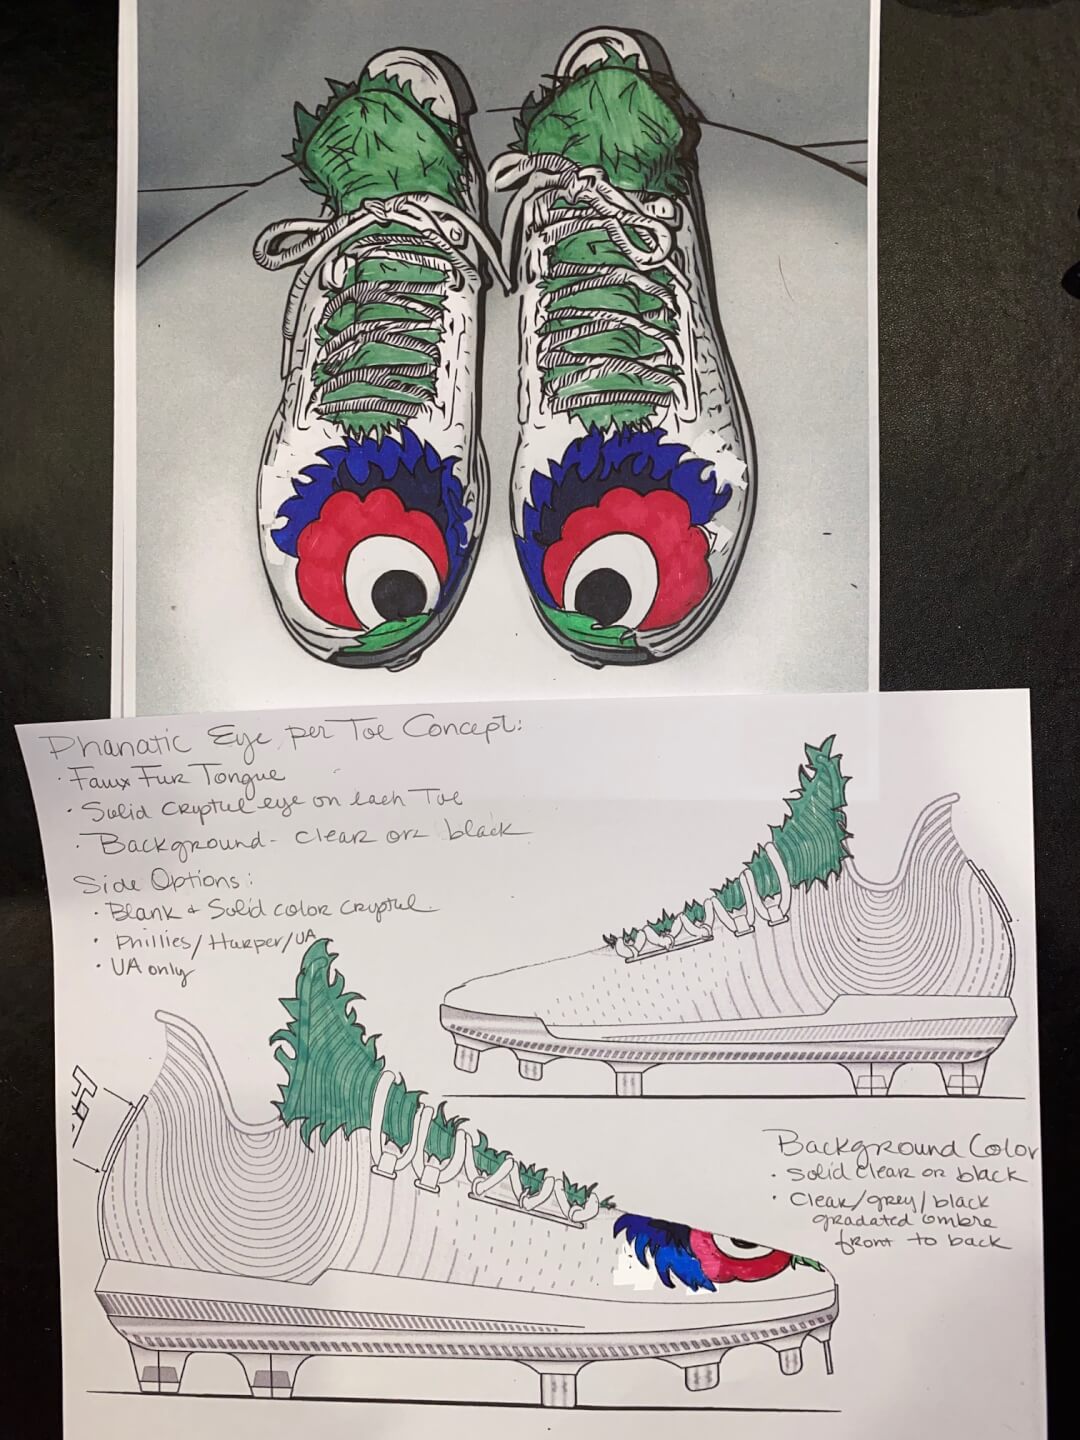 Phanatic Eye per Toe Concept:
· Faux Fur Tongue
· Solid Crystal eye on each Toe
· Background - Clear or black
Side Options:
· Blank + Solid color Crystal
· Phillies/Harper/UA
· UA only
Background Color
· Solid Clear or black
· Clear/grey/black
gradated ombre
front to back